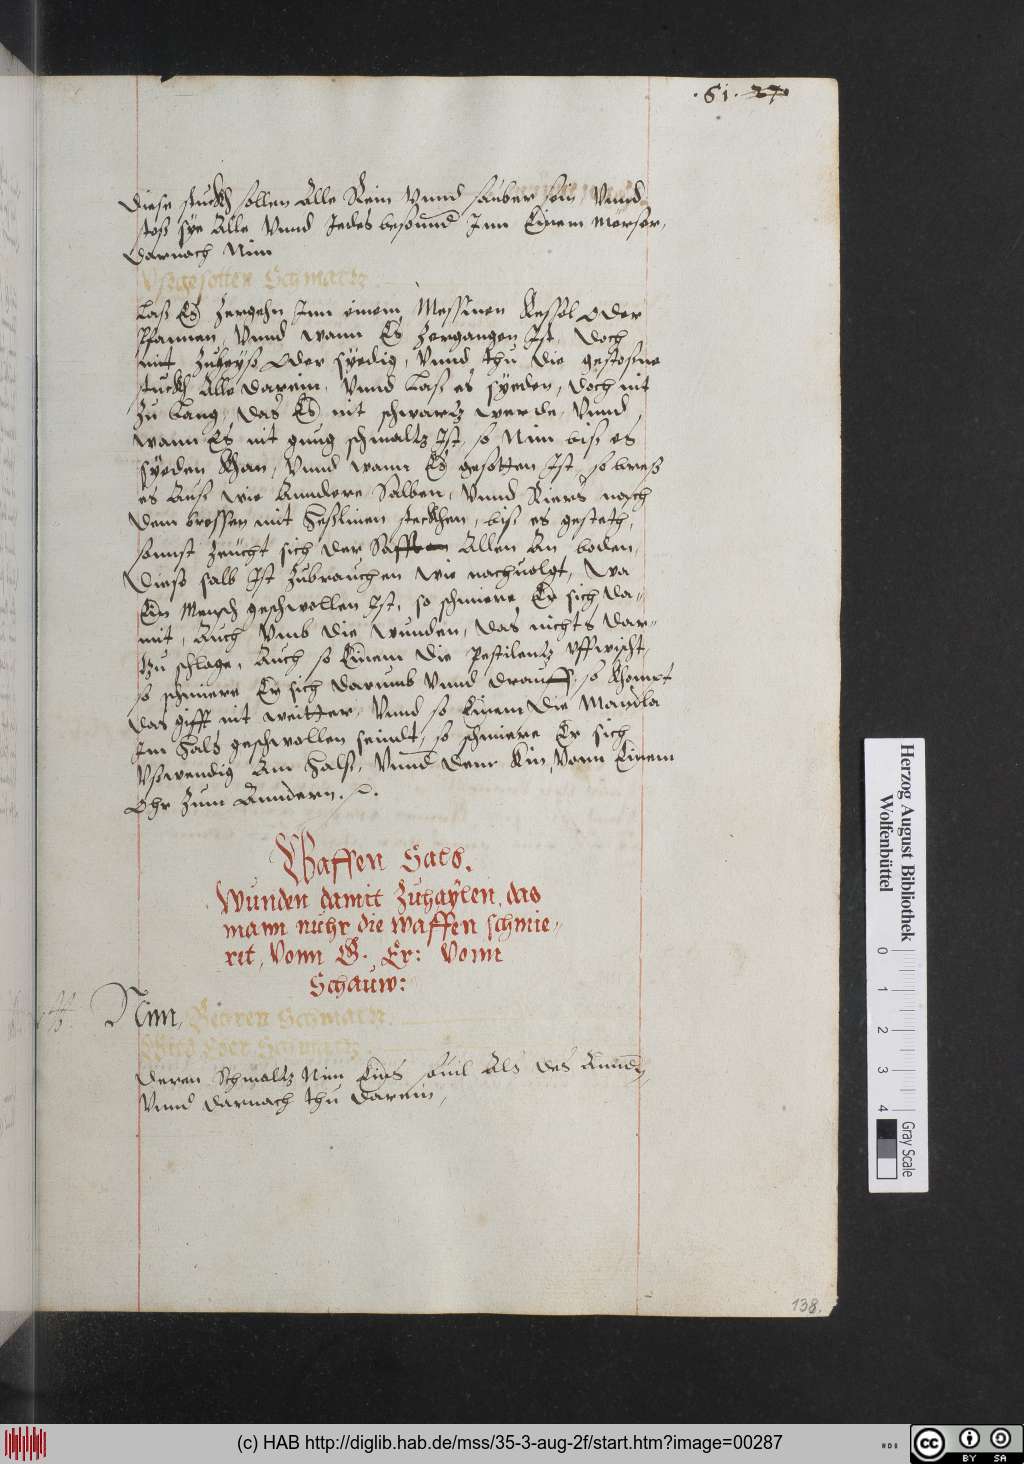 .61. 27
Diese stuckh sollen Alle Rein Vnnd sauber sein, Vnnd
stoß sye Alle Vnnd Jedes besonnd Jnn Einem Mörser,
Darnach Nim
Vßgesotten Schmaltz
Laß Es Zergehn Jnn einem Messinen Kessel oder
Pfannen, Vnnd wann Es Zergangen Jst, doch
nit Zuheyß oder syedig, Vnnd thu die gestoßne
stuckh Alle darein, Vnnd Laß es syeden, doch nit
Zu Lang, das Es nit schwartz werde, Vnnd
wann Es nit gnug schmaltz Jst, so Nim biß es
syeden Khan, Vnnd wann Es gesotten Jst, so breß
es Auß wie Anndere Salben, Vnnd Riers nach
dem bressen mit Haßlinen steckhen, biß es gesteth,
sonnst Zeucht sich der Safft Allen An boden,
Diese salb Jst Zubrauchen wie nachuolgt, Wa
Ein Mensch geschwollen Jst, so schmiere Er sich da-
mit, Auch Vmb die wunden, das nichts dar-
Zu schlage, Auch so Einem die Pestilentz Vffwischt,
so schmiere Er sich darumb Vnnd drauff, so Khompt
das gifft nit weitter, Vnnd so Einem die Mandla
Jm Hals geschwollen seindt, so schmiere Er sich
Vßwendig Am Halß, Vnnd dem Kin, Vonn Einem
Ohr Zum Anndern.
Waffen Salb.
Wunden damit Zuhaylen, das
mann nuhr die Waffen schmie-
ret, Vonn G. Er: Vonn
Schauw:
Nim, Beeren Schmaltz
Wild Eber Schmaltz
Deren Schmaltz Nim Eins souil Als des Annd,
Vnnd darnach thu darein,
138.
Herzog August Bibliothek
Wolfenbüttel
0 1 2 3 4
Gray Scale
(c) HAB http://diglib.hab.de/mss/35-3-aug-2f/start.htm?image=00287
cc BY SA